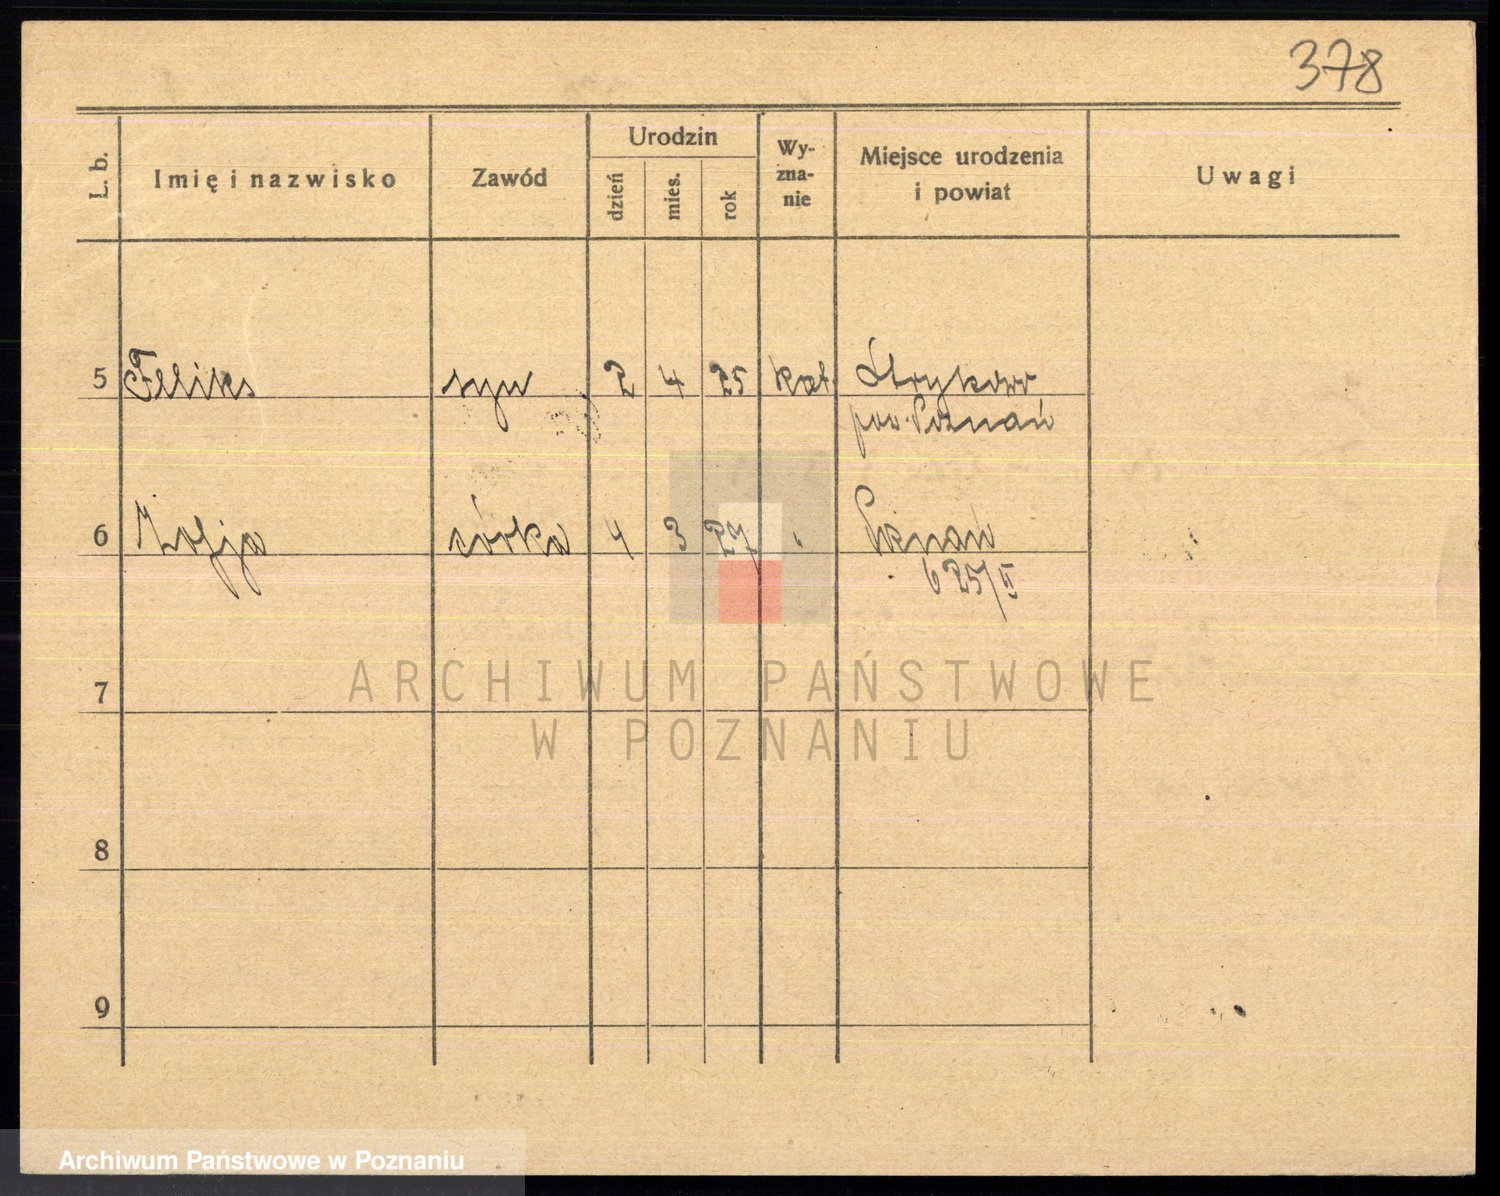 378
L. b.
Imię i nazwisko
Zawód
Urodzin
dzień
mies.
rok
Wy-
zna-
nie
Miejsce urodzenia
i powiat
Uwagi
5 Feliks syn 2 4 25 kat. Strykowo
pow. Poznań
6 Zofja córka 4 3 27 " Poznań
25/II
7
8
9
ARCHIWUM PAŃSTWOWE
W POZNANIU
Archiwum Państwowe w Poznaniu